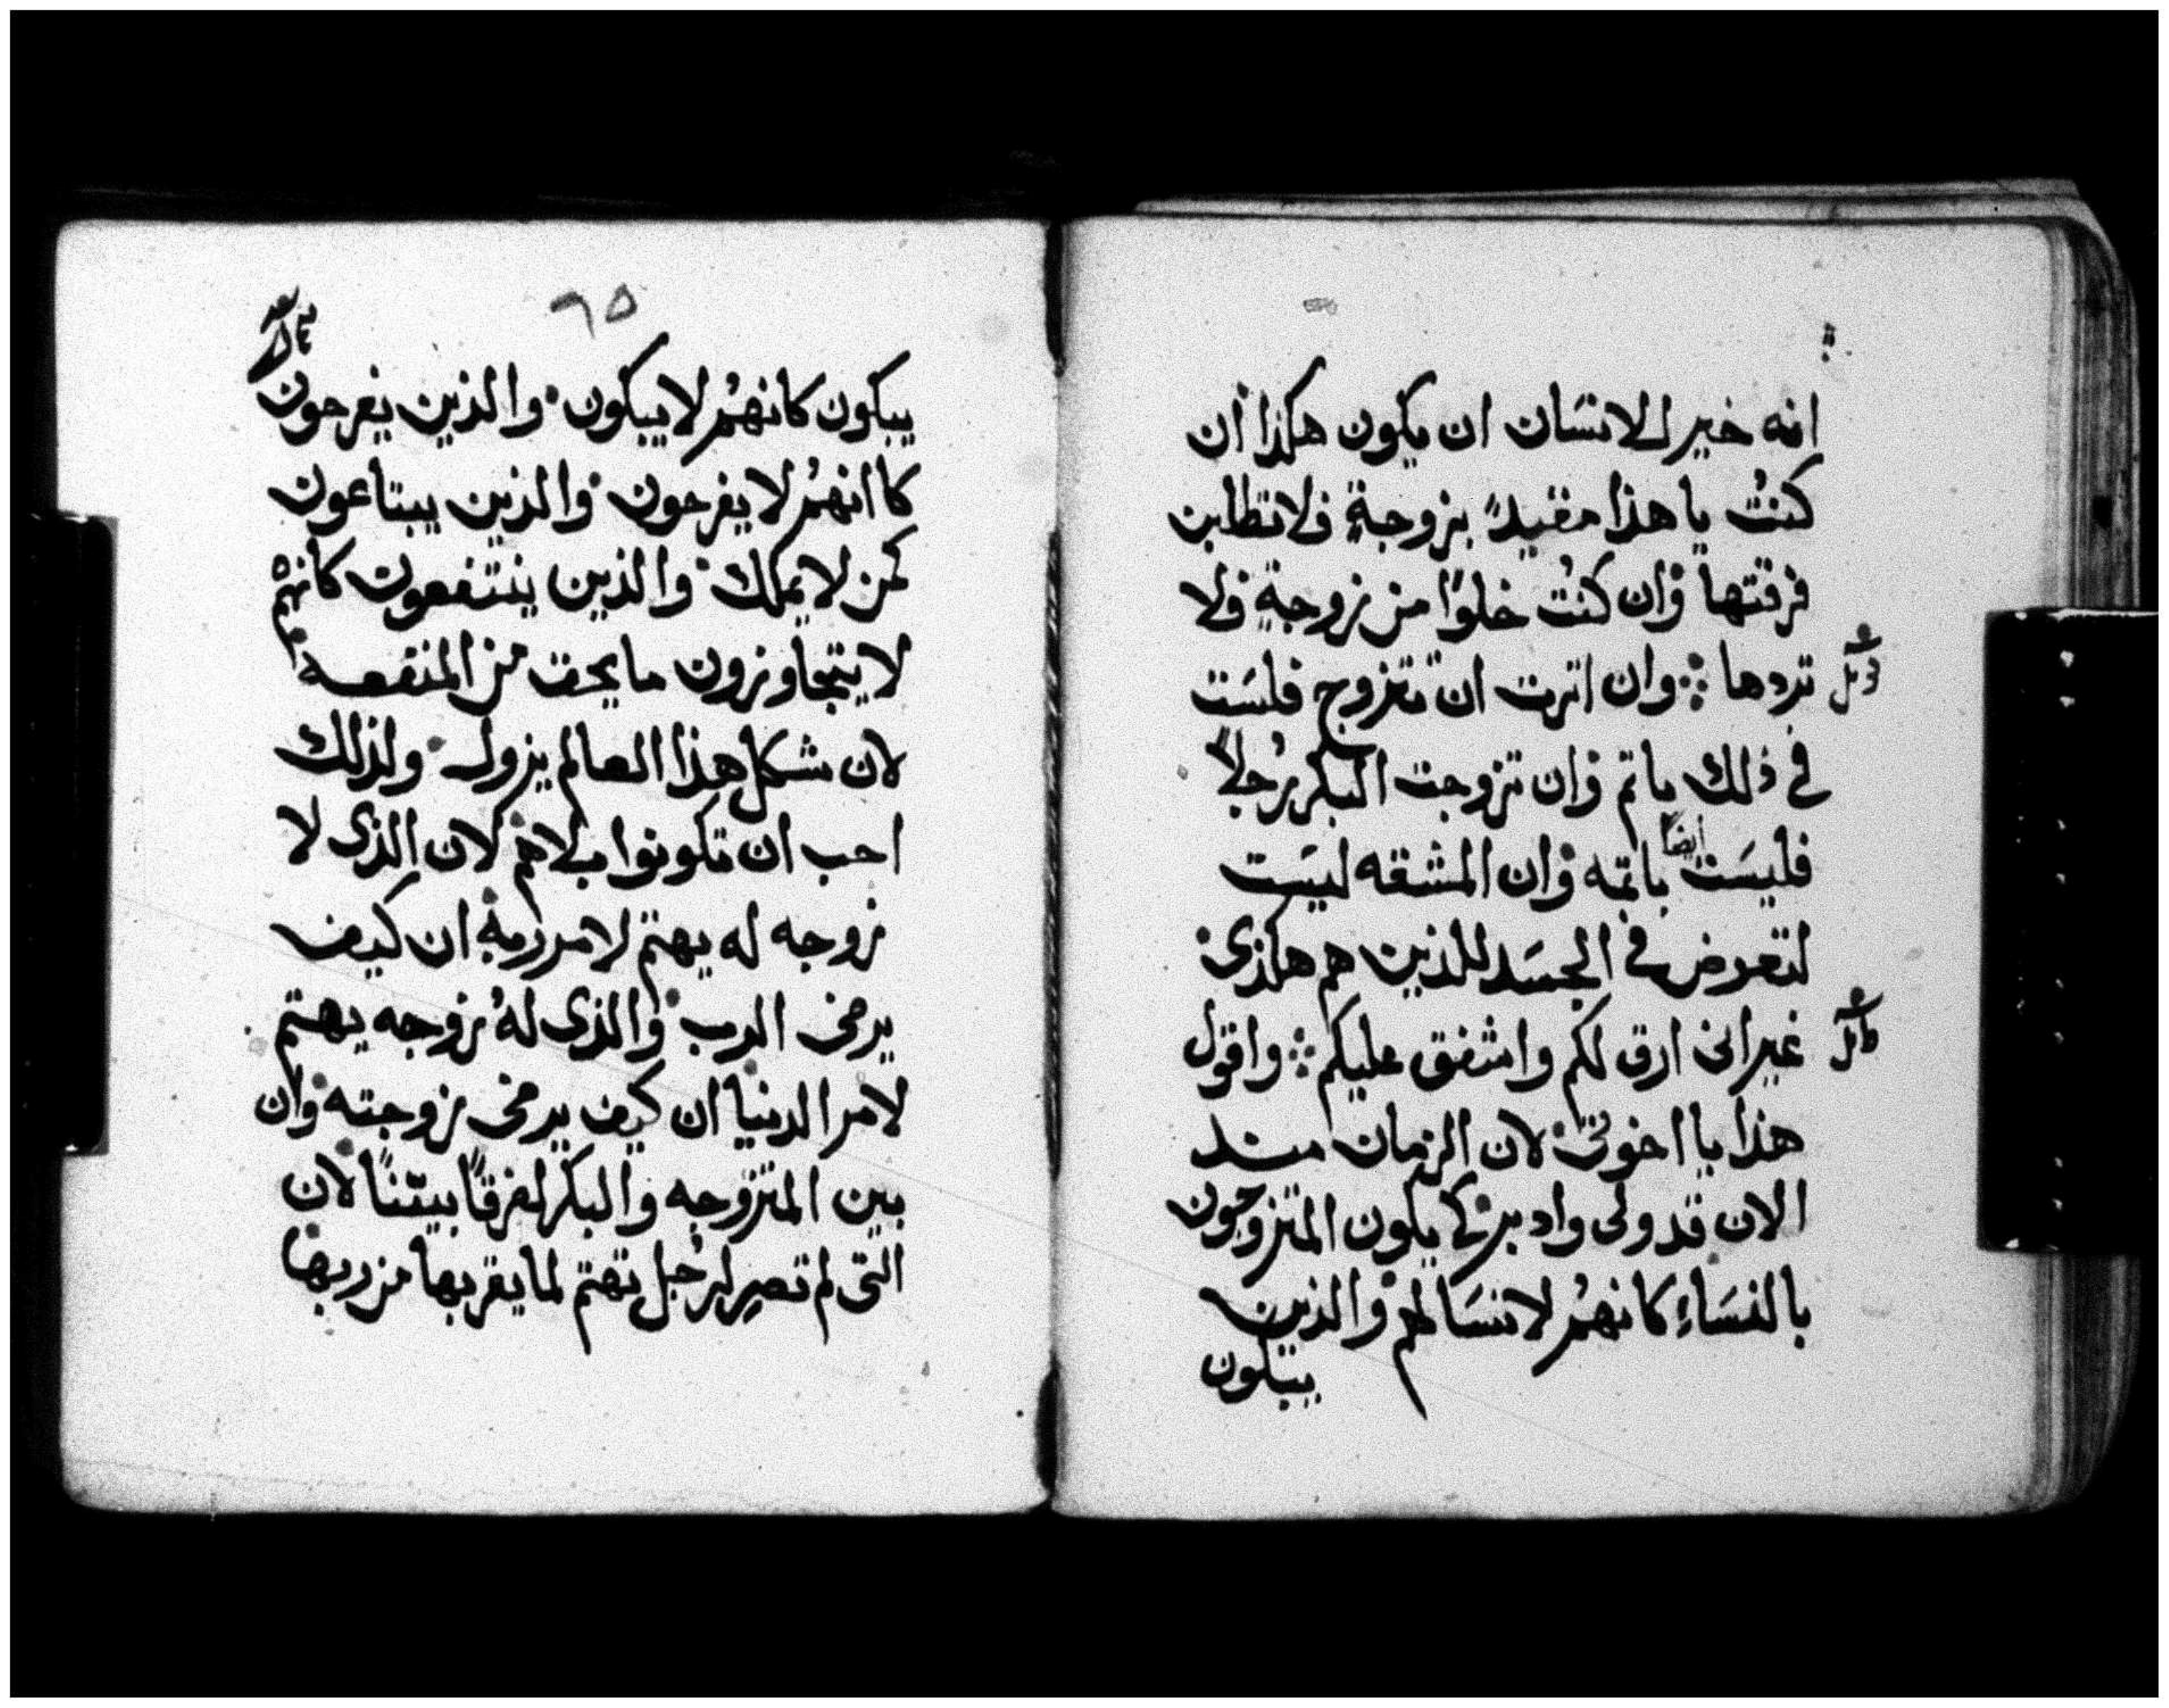 انه خير للانسَان ان يكون هكذا أن
كنتُ يا هذا مقيدً بزوجةٍ فلا تطلبن
فرقتها وان كنتُ خلوًا من زوجةٍ فلا
تردها ⁘ وان اثرت ان تتزوج فلسَت
في ذلك باثم وان تزوجت البكر برُجلاً
فليسَت أيضًا باثمه وان المشقه ليسَت
لتعرض في الجسَد للذين هم هكذى
غير انى ارق لكم واشفق عليكم ⁘ واقول
هذا يا اخوتى لان الزمان منذ
الان قد ولى وادبر كي يكون المتزوجون
بالنسَاءِ كانهمُ لا نسَا لهم والذين
يبكون
٦٥
يبكون كانهمُ لا يبكون والذين يفرحون
كاانهمُ لا يفرحون والذين يبتاعون
كمن لا يملك والذين ينتفعون كانهم
لا يتجاوزون ما يحق من المنفعه
لان شكل هذا العالم يزول ولذلك
احب ان تكونوا بلا هم لان الذى لا
زوجه له يهتم لامر ربه ان كيف
يرضى الرب والذى لهُ زوجه يهتم
لامر الدنيا ان كيف يرضى زوجته وان
بين المتزوجه والبكر لفرقًا بيّنًا لان
التى لم تصير لرجُل تهتم لما يقربها من ربها